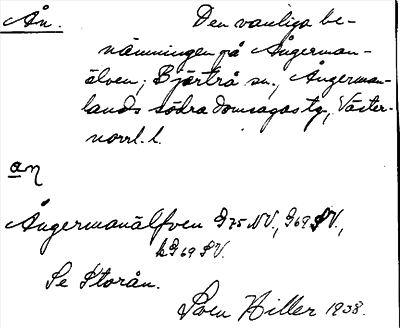 Ån. Den vanliga be-
nämningen på Ångerman-
älven; Bjärtrå sn., Ångerman-
lands södra domsagas tg, Väster-
norrl. l.
an
Ångermanälfven G75 NV., G69 SV.,
h G 69 SV.
Se Storån.
Sven Hiller 1938.